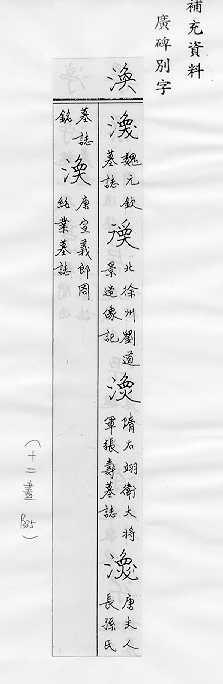 補充資料
廣碑別字
渙
渙 魏元欽
墓誌
渙 北徐州劉道
景造像記
渙 隋右翊衛大將
軍張壽墓誌
渙 唐夫人
長孫氏
墓誌
銘
渙 唐宣義郎周
紹業墓誌
(十二畫 P385)